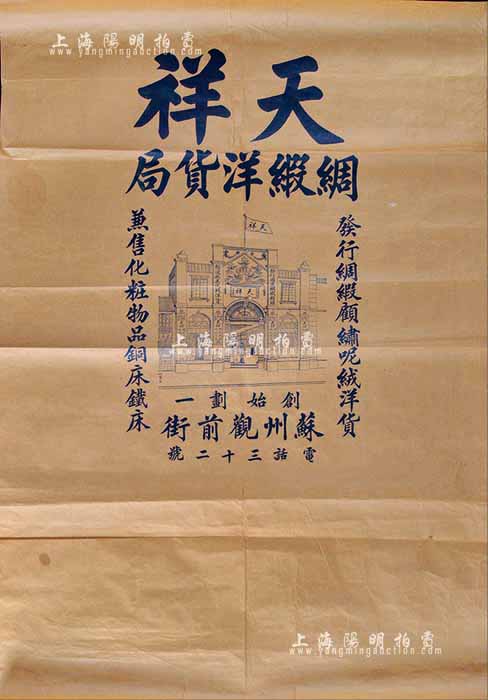 上海陽明拍賣
www.yangmingauction.com
天祥
綢緞洋貨局
發行綢緞顧繡呢絨洋貨
兼售化粧物品銅床鐵床
天祥
天祥
上海陽明拍賣
www.yangmingauction.com
創始劃一
蘇州觀前街
電話三十二號
上海陽明拍賣
www.yangmingauction.com